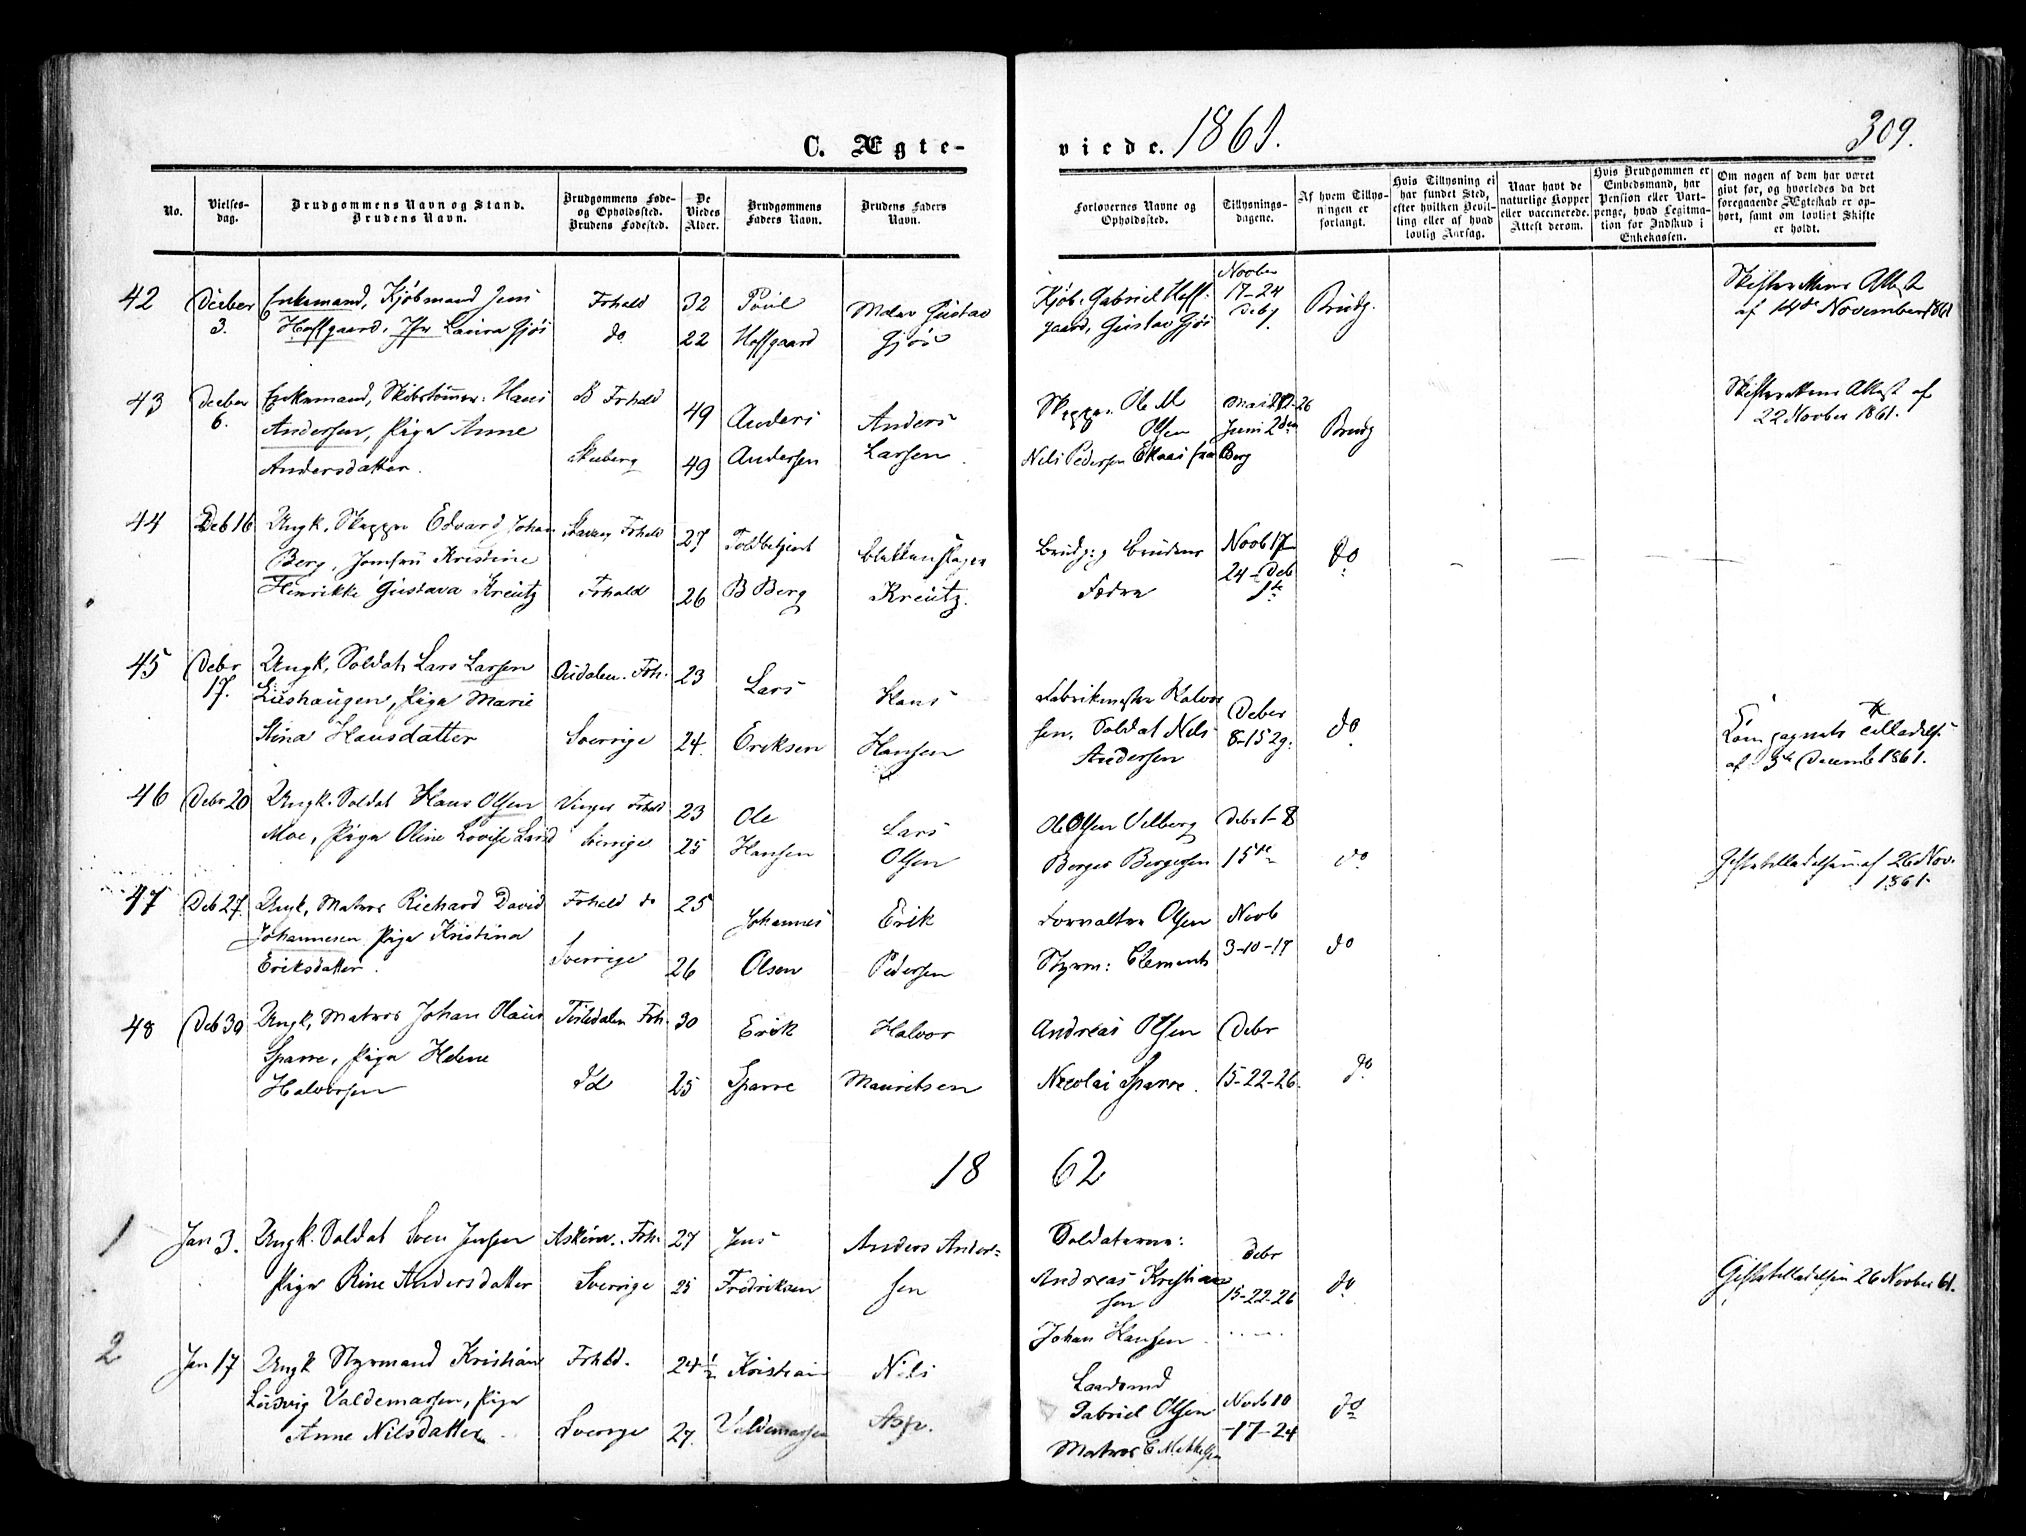 C. Ægte-
viede. 1861.
309.
No.
Vielses-
dag.
Brudgommens Navn og Stand.
Brudens Navn.
Brudgommens Føde-
og Opholdssted.
Brudens Fødested.
De
Viedes
Alder.
Brudgommens
Faders Navn.
Brudens Faders
Navn.
Forlovernes Navne og
Opholdssted.
Tillysnings-
dagene.
Af hvem Tillys-
ningen er
forlangt.
Hvis Tillysning ei
har fundet Sted,
efter hvilken Bevil-
ling eller af hvad
lovlig Aarsag.
Naar havt de
naturlige Kopper
eller vaccinerede.
Attest derom.
Hvis Brudgommen er
Embedsmand, har
Pension eller Vart-
penge, hvad Legitima-
tion for Indskud i
Enkekassen.
Om nogen af dem har været
givt før, og hvorledes da det
foregaaende Ægteskab er op-
hørt, samt om lovligt Skifte
er holdt.
42
Deeber
3.
Enkemand, Kjøbmand Jens
Hoffgaard, Jfr Laura Gjøs
Frhald
do
32
22
Poul
Hoffgaard
Gustav
Gjøs
Kjøb. Gabriel Hoff-
gaard, Gustav Gjøs
Novber
17-24
Deb 1
Brudg.
Skifterettens Attest
af 14de November 1861
43
Deeber
6.
Enkemand, Hans
Andersen, Pige Anne
Andersdatter.
Frhald
Skeberg
49
49
Anders
Andersen
Anders
Larsen
Skipper Ole M
Olsen
Nils Pedersen fra Berg
Mai 26
Juni 2den
Brudg
Skifterettens Attest af
22 Novber 1861.
44
Deb 16
Ungk. Skipper Edvard Johan
Berg, Jomfru Kristine
Henrikke Gustava Kreutz
Frhald
Frhald
27
26
Toldbetjent
B Berg
Kreutz.
Brudg: og Brudens
Fædre
Novb 17
24 - Deb
1ste
do
45
Debr
17.
Ungk. Soldat Lars Larsen
Lushaugen, Pige Marie
Stina Hansdatter
Oudalen. Frh.
Sverrige
23
24.
Lars
Eriksen
Hans
Hansen
Fabrikmester Halvor
sen, Soldat Nils
Andersen
Deber
8-15 29.
do
af 5te Decemb 1861.
46
Debr 20
Ungk. Soldat Hans Olsen
Moe, Pige Oline Lovise Larsd
Vinger Frhald
Sverrige
23
25
Ole
Hansen
Lars
Olsen
Ole Olsen Velberg
Berger Bergersen
Debr 1-8
15de
do
Giftetilladelsen af 26 Nov.
1861.
47
Deb 27.
Ungk. Matros Richard David
Johannesen Pige Kristina
Eriksdatter.
Frhald do
Sverrige
25
26
Johannes
Olsen
Erik
Pedersen
Forvalter Olsen
Styrm: Clements
Novb
3-10-17
do
48
Deb 30
Ungk. Matros Johan Olaus
Sparre, Pige Helene
Halvorsen
Tistedalen Frh.
Id
30
25
Erik
Sparre
Halvor
Mauritsen
Andreas Olsen
Nicolai Sparre.
Debr
15-22-26.
do
18 62
1
Jan 3.
Ungk. Soldat Sven Jensen
Pige Rine Andersdatter
Askim. Frh.
Sverrige
27
25
Jens
Fredriksen
Anders Ander-
sen
Soldaterne:
Andreas Kristian
sen
Johan Hansen
Debr
15-22-26
do
Giftetilladelsen 26 Novber 61.
2
Jan 17
Ungk Styrmand Kristian
Ludvig Valdemarsen, Pige
Anne Nilsdatter
Frhld.
Sverrge
24 1/2
27.
Kristian
Valdemarsen
Nils
Asp.
Gabriel Olsen
Matros C Mikkelsen
Novb 10
-17-24
do